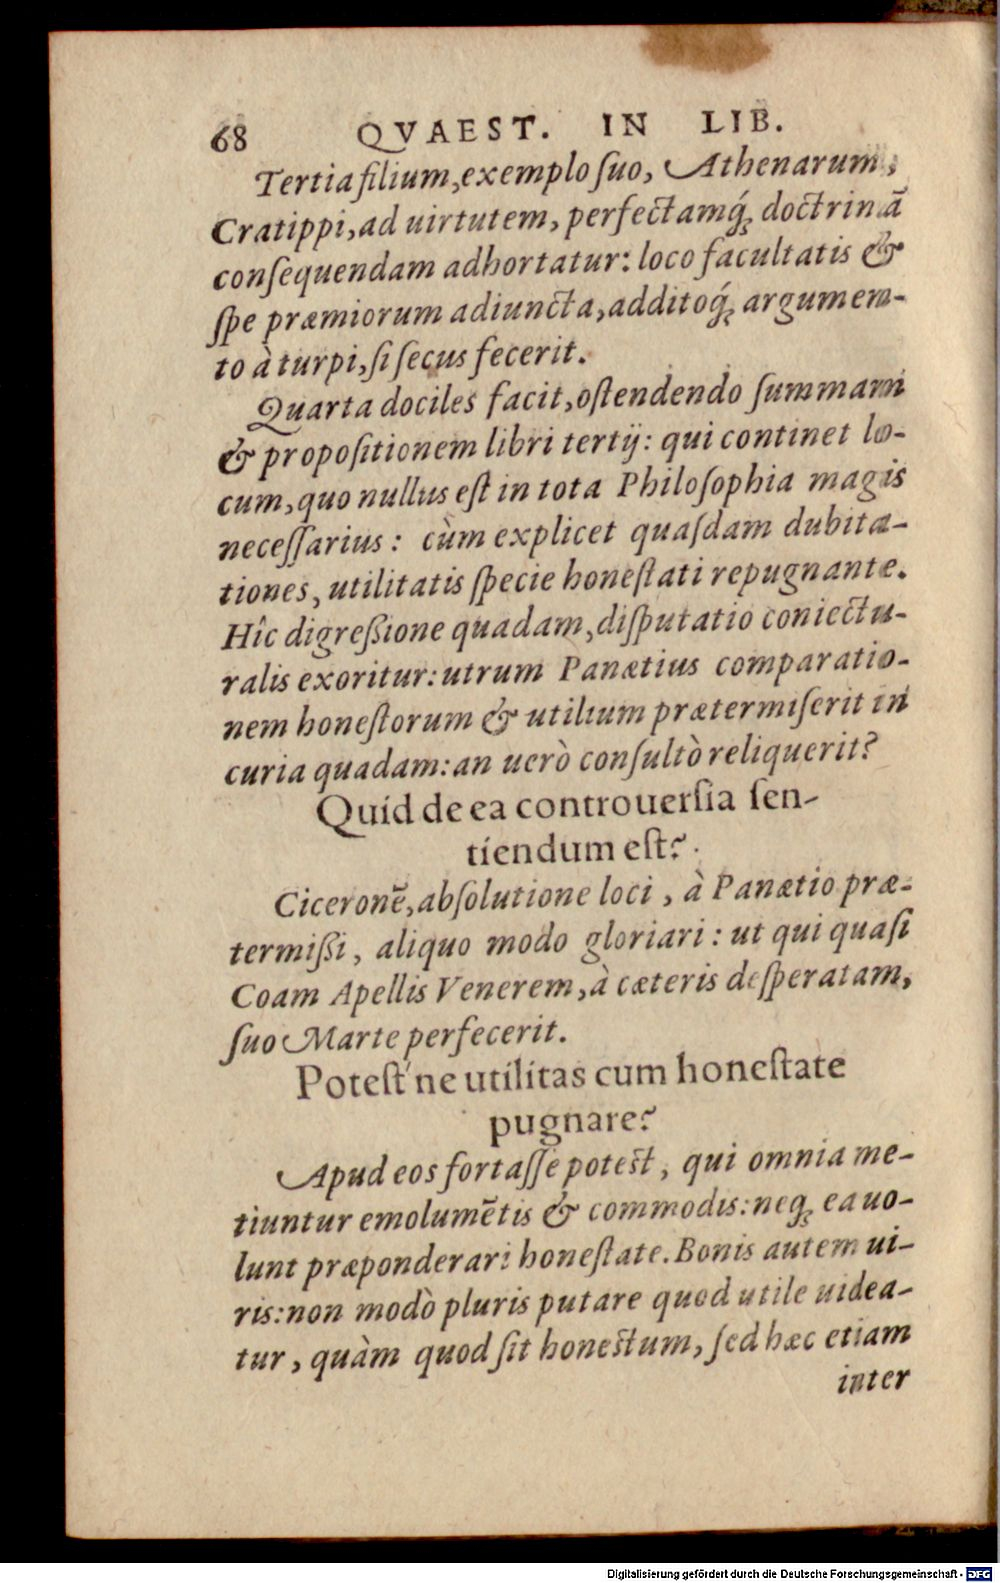 68 QVAEST. IN LIB.
Tertia filium, exemplo ſuo, Athenarum,
Cratippi, ad uirtutem, perfectamq́ꝫ doctrinā
conſequendam adhortatur: loco facultatis &
ſpe præmiorum adiuncta, additoq́ꝫ argumen-
to à turpi, ſi ſecus fecerit.
Quarta dociles facit, oſtendendo ſummam
& propoſitionem libri tertij: qui continet lo-
cum, quo nullus eſt in tota Philoſophia magis
neceſſarius: cùm explicet quaſdam dubita-
tiones, utilitatis ſpecie honeſtati repugnante.
Hîc digreßione quadam, diſputatio coniectu-
ralis exoritur: utrum Panætius comparatio-
nem honeſtorum & utilium prætermiſerit in
curia quadam: an uerò conſultò reliquerit?
Quid de ea controuerſia ſen-
tiendum eſt?
Ciceronē, abſolutione loci, à Panætio præ-
termißi, aliquo modo gloriari: ut qui quaſi
Coam Apellis Venerem, à cæteris deſperatam,
ſuo Marte perfecerit.
Poteſt'ne utilitas cum honeſtate
pugnare?
Apud eos fortaſſe poteſt, qui omnia me-
tiuntur emolumētis & commodis: neqꝫ ea uo-
lunt præponderari honeſtate. Bonis autem ui-
ris: non modò pluris putare quod utile uidea-
tur, quàm quod ſit honeſtum, ſed hæc etiam
inter
Digitalisierung gefördert durch die Deutsche Forschungsgemeinschaft - DFG